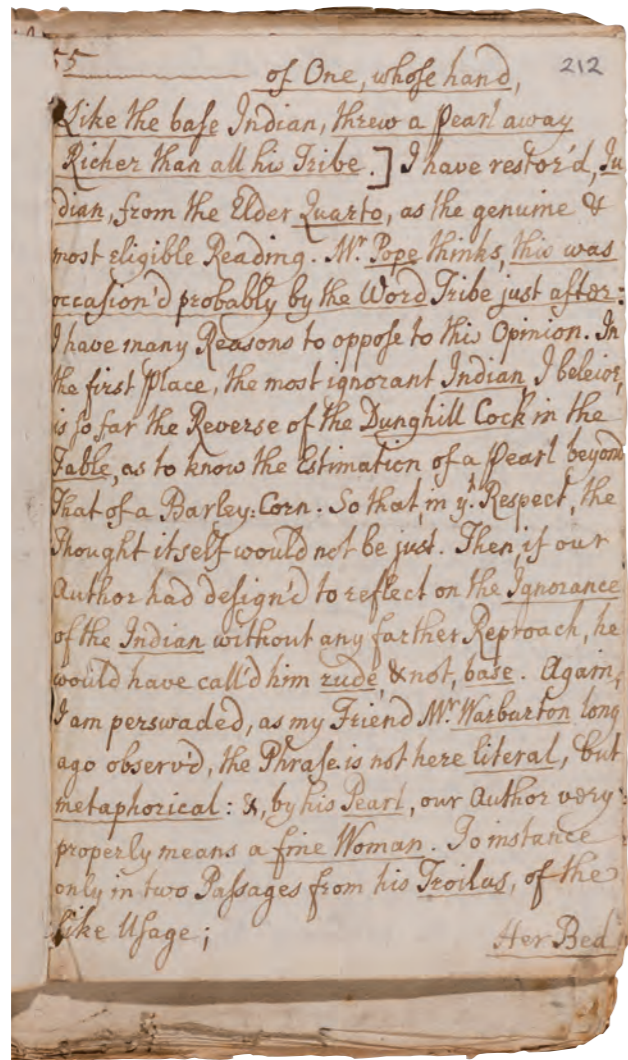 55 of One, whose hand, 212
Like the base Indian, threw a Pearl away
Richer than all his Tribe.] I have restor'd, In
dian, from the Elder Quarto, as the genuine &
most eligible Reading. Mr. Pope thinks, this was
occasion'd probably by the Word Tribe just after:
I have many Reasons to oppose to this Opinion. In
the first Place, the most ignorant Indian I beleive,
is so far the Reverse of the Dunghill Cock in the
Fable, as to know the Estimation of a Pearl beyond
that of a Barley-Corn. So that, in yt. Respect, the
thought itself would not be just. Then, if our
Author had design'd to reflect on the Ignorance
of the Indian without any farther Reproach, he
would have call'd him rude, & not, base. Again,
I am perswaded, as my Friend Mr. Warburton long
ago observ'd, the Phrase is not here literal, but
metaphorical: &, by his Pearl, our Author very
properly means a fine Woman. To instance
only in two Passages from his Troilus, of the
like Usage;
Her Bed